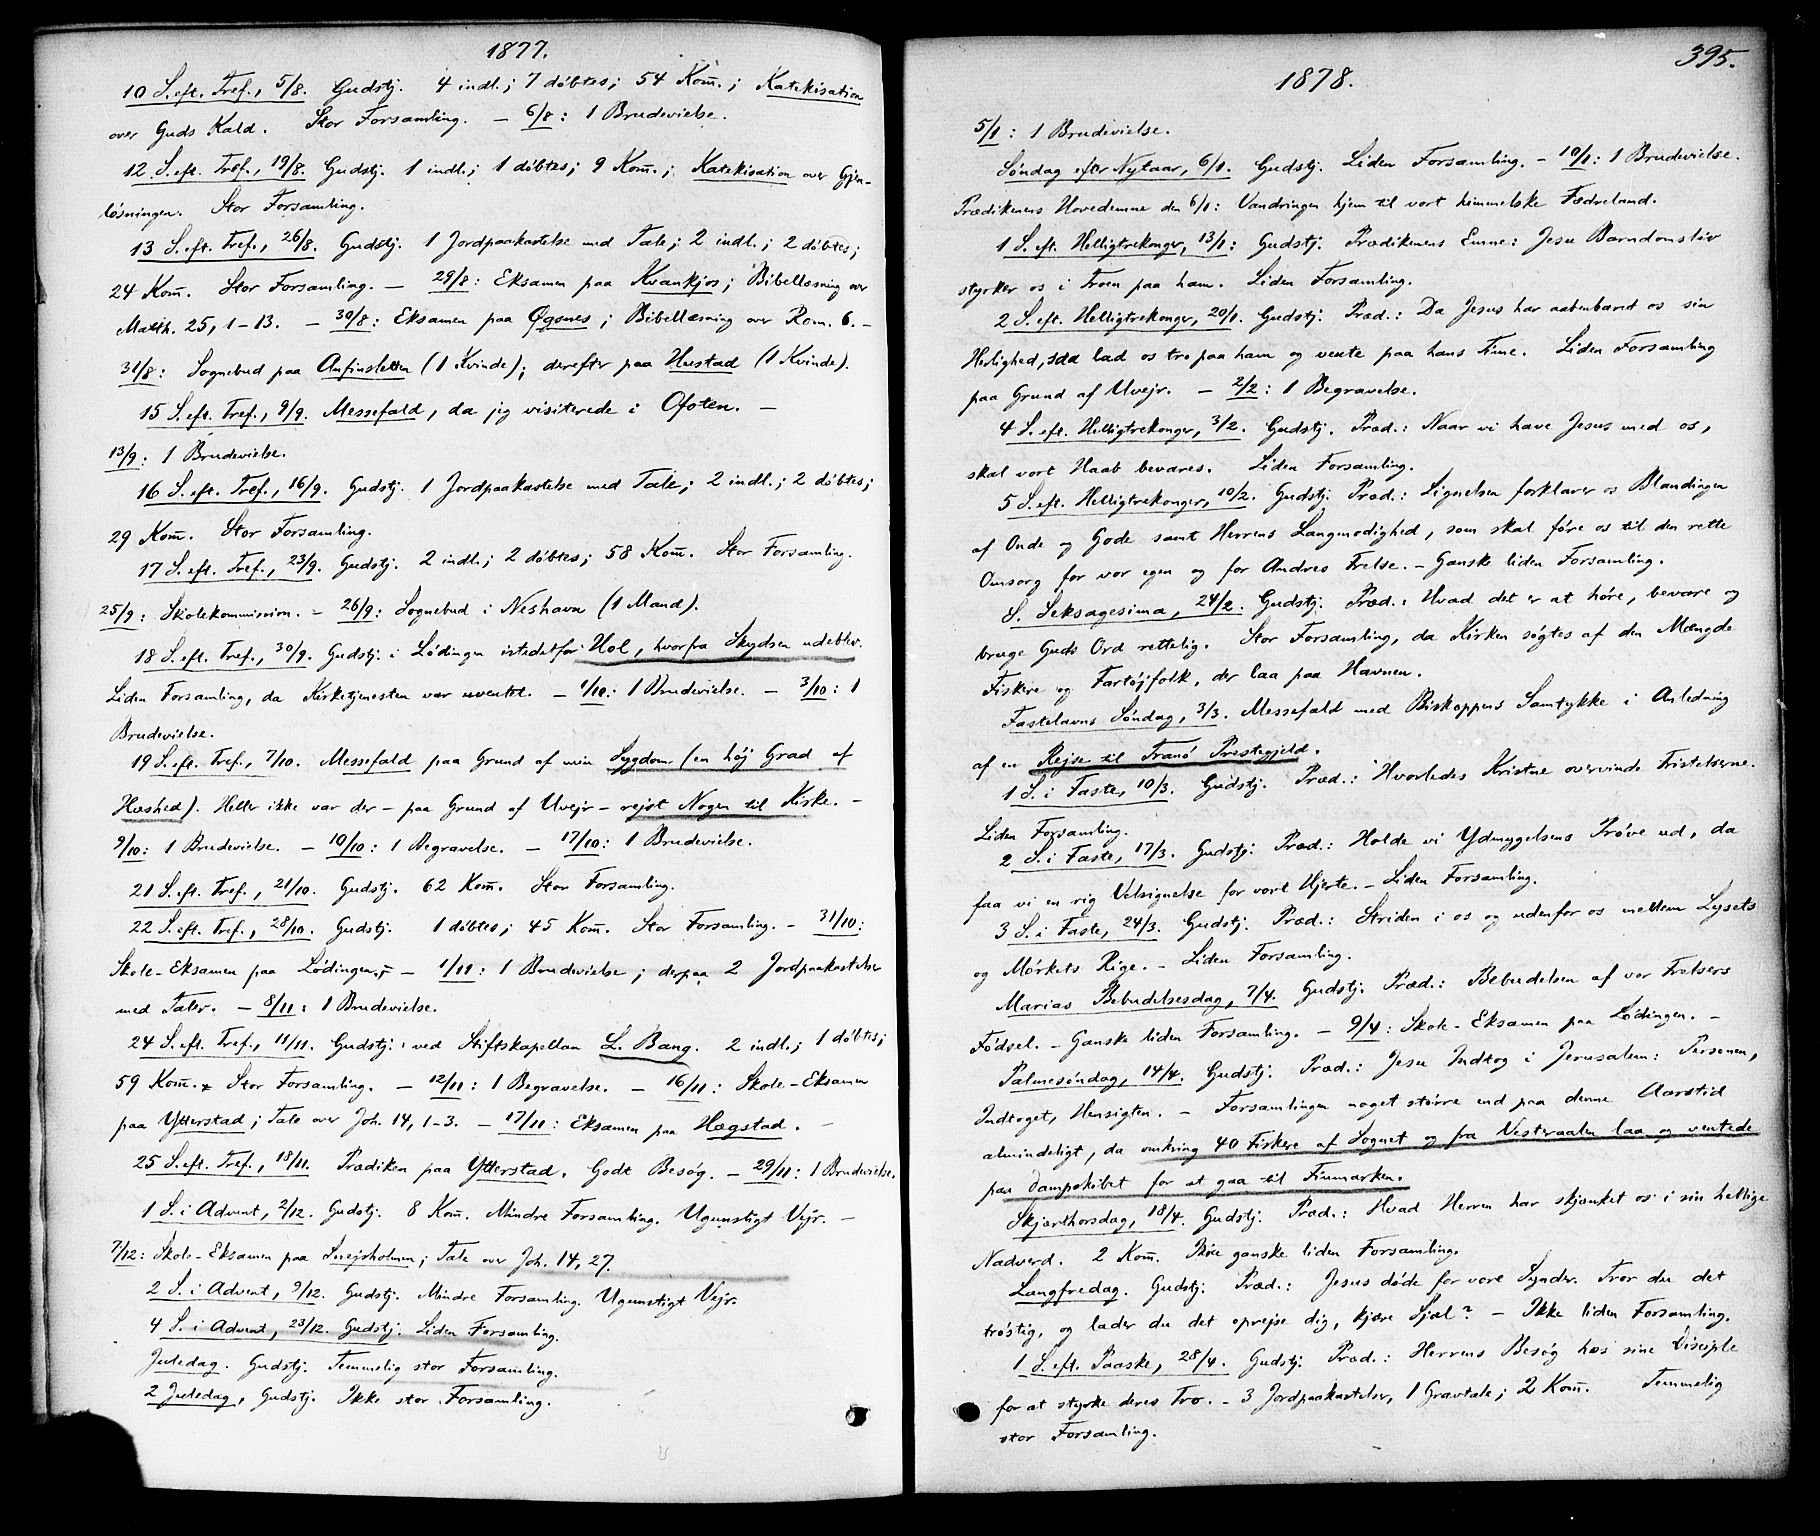 1877.
10 S. eft. Tref., 5/8. Gudstj. 4 indl.; 7 døbtes; 54 Kom̄.; Katekisation
over Guds Kald. Stor Forsamling. — 6/8: 1 Brudevielse.
12 S. eft. Tref., 19/8. Gudstj. 1 indl.; 1 døbtes; 9 Kom̄.; Katekisation over Gjen-
løsningen. Stor Forsamling.
13 S. eft. Tref., 26/8. Gudstj. 1 Jordpaakastelse med Tale; 2 indl.; 2 døbtes;
24 Kom̄. Stor Forsamling. — 29/8: Eksamen paa Kvankjos; Bibellæsning over
Matth. 25, 1-13. — 30/8: Eksamen paa Øgsnes; Bibellæsning over Rom. 6. —
31/8: Sognebud paa Anfinsletten (1 Kvinde); derefter paa Hustad (1 Kvinde).
15 S. eft. Tref., 9/9. Messefald, da jeg visiterede i Ofoten. —
13/9: 1 Brudevielse.
16 S. eft. Tref., 16/9. Gudstj. 1 Jordpaakastelse med Tale; 2 indl.; 2 døbtes;
29 Kom̄. Stor Forsamling.
17 S. eft. Tref., 23/9. Gudstj. 2 indl.; 2 døbtes; 58 Kom̄. Stor Forsamling.
25/9: Skolekommission. — 26/9: Sognebud i Neshavn (1 Mand).
18 S. eft. Tref., 30/9. Gudstj. i Lødingen istedetfor Hol, hvorfra Skydsen udeblev.
Liden Forsamling, da Kirketjenesten var uventet. — 1/10: 1 Brudevielse. — 3/10: 1
Brudevielse.
19 S. eft. Tref., 7/10. Messefald paa Grund af min Sygdom (en høj Grad af
Hæshed). Heller ikke var der — paa Grund af Uvejr — rejst Nogen til Kirke. —
9/10: 1 Brudevielse. — 10/10: 1 Begravelse. — 17/10: 1 Brudevielse.
21 S. eft. Tref., 21/10. Gudstj. 62 Kom̄. Stor Forsamling.
22 S. eft. Tref., 28/10. Gudstj. 1 døbtes; 45 Kom̄. Stor Forsamling. — 31/10:
Skole-Eksamen paa Lødingen. — 1/11: 1 Brudevielse; derpaa 2 Jordpaakastelser
med Taler. — 8/11: 1 Brudevielse.
24 S. eft. Tref., 11/11. Gudstj. ved Stiftskapellan L. Bang. 2 indl.; 1 døbtes;
59 Kom̄. Stor Forsamling. — 12/11: 1 Begravelse. — 16/11: Skole-Eksamen
paa Ytterstad; Tale over Joh. 14, 1-3. — 17/11: Eksamen paa Hægstad. —
25 S. eft. Tref., 18/11. Prædiken paa Ytterstad. Godt Besøg. — 29/11: 1 Brudevielse.
1 S. i Advent, 2/12. Gudstj. 8 Kom̄. Mindre Forsamling. Ugunstigt Vejr. —
7/12: Skole-Eksamen paa Svejsholmen; Tale over Joh. 14, 27.
2 S. i Advent, 9/12. Gudstj. Mindre Forsamling. Ugunstigt Vejr.
4 S. i Advent, 23/12. Gudstj. Liden Forsamling.
Juledag. Gudstj. Temmelig stor Forsamling.
2 Juledag, Gudstj. Ikke stor Forsamling.
395.
1878.
5/1: 1 Brudevielse.
Søndag efter Nytaar, 6/1. Gudstj. Liden Forsamling. — 10/1: 1 Brudevielse.
Prædikenens Hovedemne den 6/1: Vandringen hjem til vort himmelske Fædreland.
1 S. eft. Helligtrekonger, 13/1: Gudstj. Prædikenens Emne: Jesu Barndomsliv
styrker os i Troen paa ham. Liden Forsamling.
2 S. eft. Helligtrekonger, 20/1. Gudstj. Præd.: Da Jesus har aabenbaret os sin
Herlighed, saa lad os tro paa ham og vente paa hans Time. Liden Forsamling
paa Grund af Uvejr. — 2/2: 1 Begravelse.
4 S. eft. Helligtrekonger, 3/2. Gudstj. Præd.: Naar vi have Jesus med os,
skal vort Haab bevares. Liden Forsamling.
5 S. eft. Helligtrekonger, 10/2. Gudstj. Præd.: Lignelsen forklarer os Blandingen
af Onde og Gode samt Herrens Langmodighed, som skal føre os til den rette
Omsorg for vor egen og for Andres Frelse. — Ganske liden Forsamling.
S. Seksagesima, 24/2. Gudstj. Præd.: Hvad det er at høre, bevare og
bruge Guds Ord rettelig. Stor Forsamling, da Kirken søgtes af den Mængde
Fiskere og Fartøjfolk, der laa paa Havnen.
Fastelavns Søndag, 3/3. Messefald med Biskoppens Samtykke i Anledning
af en Rejse til Tranø Præstegjeld.
1 S. i Faste, 10/3. Gudstj. Præd.: Hvorledes Kristne overvinde Fristelserne.
Liden Forsamling.
2 S. i Faste, 17/3. Gudstj. Præd.: Holde vi Ydmygelsens Prøve ud, da
faa vi en rig Velsignelse for vort Hjerte. — Liden Forsamling.
3 S. i Faste, 24/3. Gudstj. Præd.: Striden i os og udenfor os mellem Lysets
og Mørkets Rige. — Liden Forsamling.
Marias Bebudelsesdag, 7/4. Gudstj. Præd.: Bebudelsen af vor Frelsers
Fødsel. — Ganske liden Forsamling. — 9/4: Skole-Eksamen paa Lødingen. —
Palmesøndag, 14/4. Gudstj. Præd.: Jesu Indtog i Jerusalem: Personen,
Indtoget, Hensigten. — Forsamlingen noget større end paa denne Aarstid
almindeligt, da omkring 40 Fiskere af Sognet og fra Vesteraalen laa og ventede
paa Dampskibet for at gaa til Finmarken.
Skjærthorsdag, 18/4. Gudstj. Præd.: Hvad Herren har skjænket os i sin hellige
Nadverd. 2 Kom̄. Ikke ganske liden Forsamling.
Langfredag. Gudstj. Præd.: Jesus døde for vore Synder. Tror du det
trøstig, og lader du det oprejse dig, kjære Sjæl? — Ikke liden Forsamling.
1 S. eft. Paaske, 28/4. Gudstj. Præd.: Herrens Besøg hos sine Disciple
for at styrke deres Tro. — 3 Jordpaakastelser, 1 Gravtale; 2 Kom̄. Temmelig
stor Forsamling.